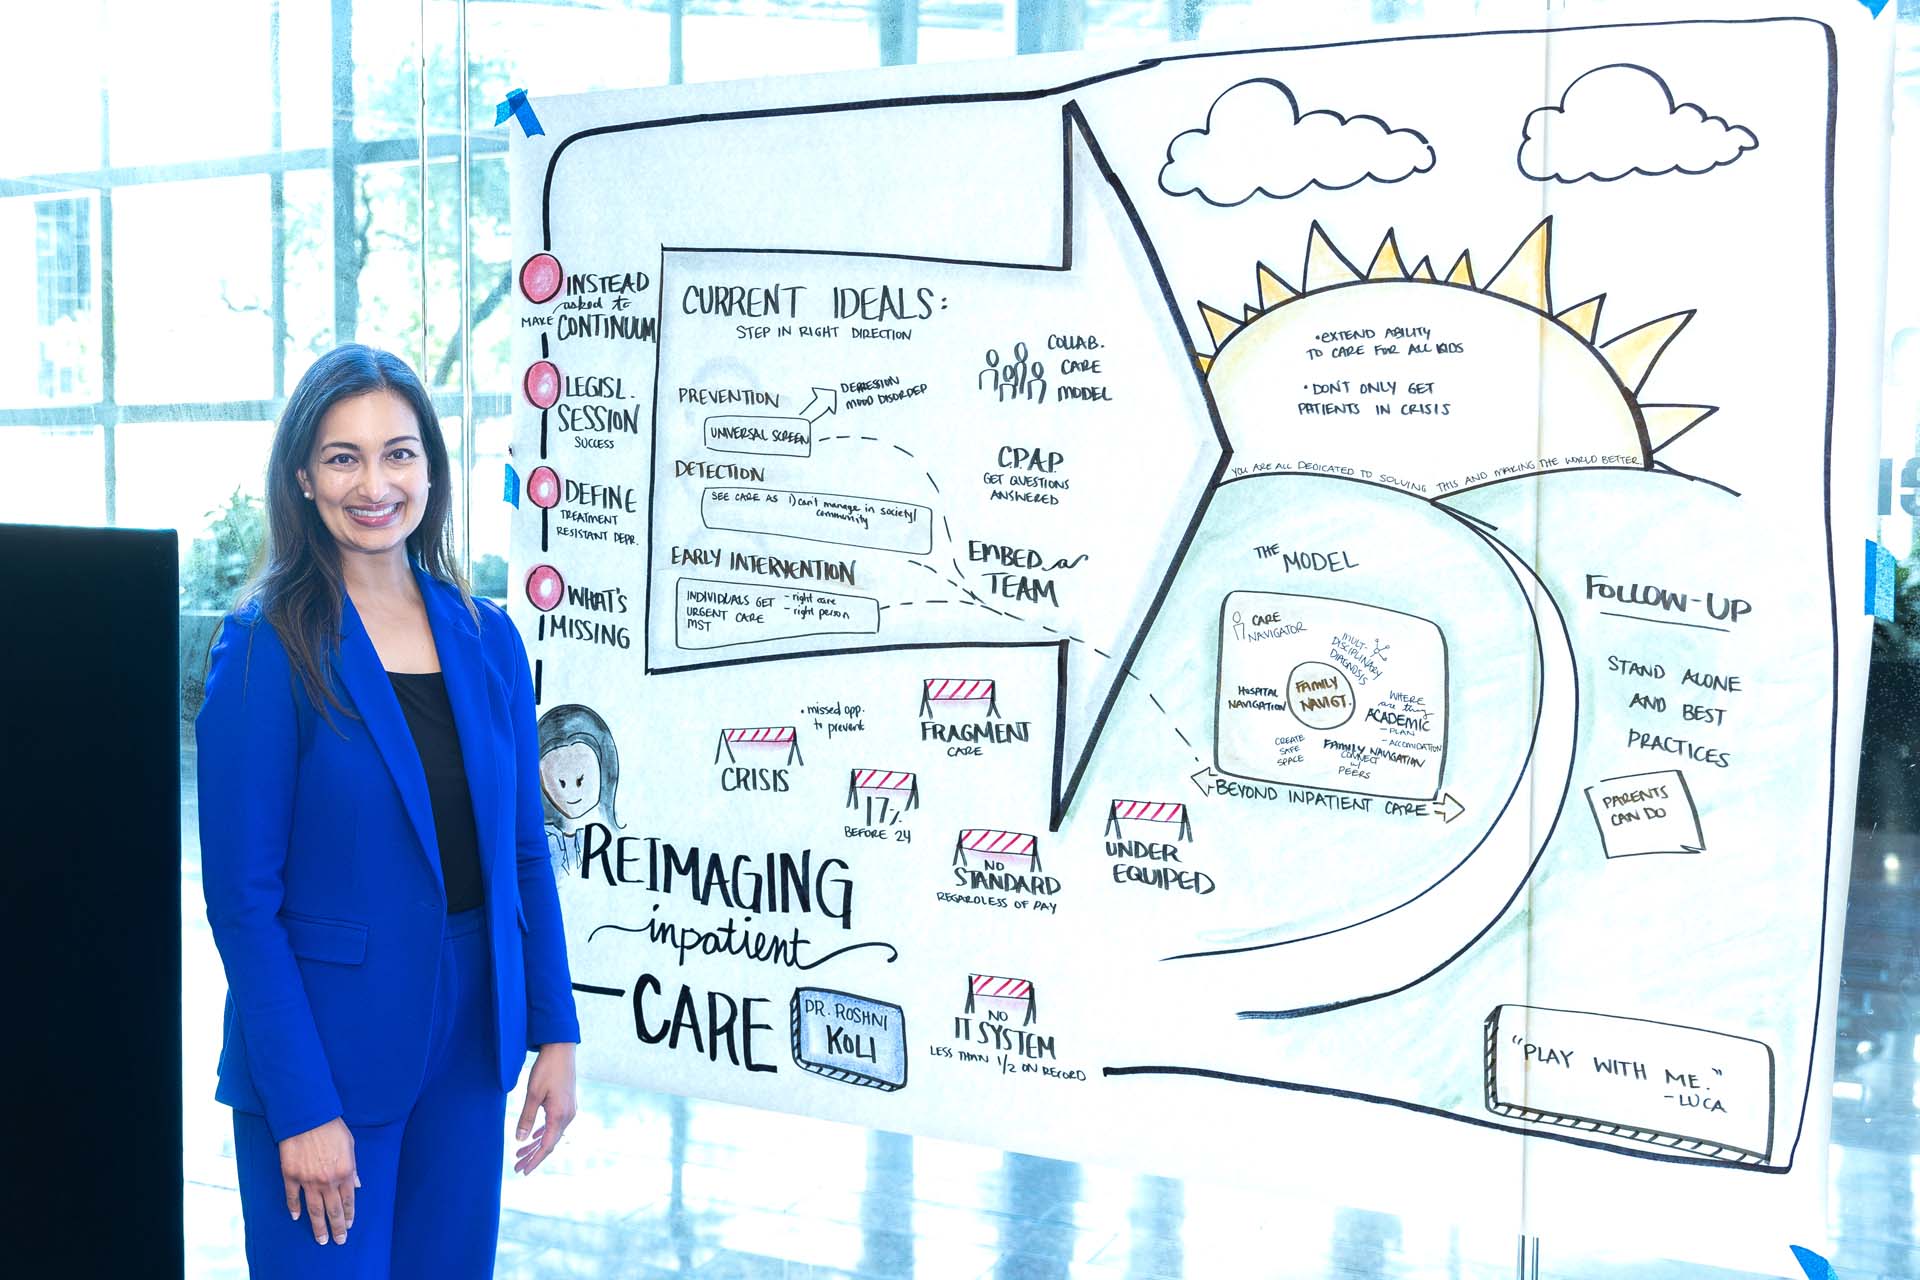 INSTEAD
asked to
MAKE CONTINUUM
LEGISL.
SESSION
SUCCESS
DEFINE
TREATMENT
RESISTANT DEPR.
WHAT'S
MISSING
REIMAGING
inpatient
CARE
DR. ROSHNI
KOLI
CURRENT IDEALS:
STEP IN RIGHT DIRECTION
PREVENTION
UNIVERSAL SCREEN
DEPRESSION
MOOD DISORDER
DETECTION
SEE CARE AS 1) can't manage in society/
community
EARLY INTERVENTION
INDIVIDUALS GET - right care
URGENT CARE - right person
MST
COLLAB.
CARE
MODEL
C.P.A.P.
GET QUESTIONS
ANSWERED
EMBED a
TEAM
• missed opp.
to prevent
CRISIS
FRAGMENT
CARE
17%
BEFORE 24
NO
STANDARD
REGARDLESS OF PAY
UNDER
EQUIPED
NO
IT SYSTEM
LESS THAN 1/2 ON RECORD
• EXTEND ABILITY
TO CARE FOR ALL KIDS
• DON'T ONLY GET
PATIENTS IN CRISIS
YOU ARE ALL DEDICATED TO SOLVING THIS AND MAKING THE WORLD BETTER.
THE MODEL
CARE
NAVIGATOR
MULTI-
DISCIPLINARY
DIAGNOSIS
HOSPITAL
NAVIGATION
FAMILY
NAVIGT.
WHERE
are they
ACADEMIC
- PLAN
- ACCOMODATION
CREATE
SAFE
SPACE
FAMILY NAVIGATION
CONNECT
w/
PEERS
BEYOND INPATIENT CARE
FOLLOW-UP
STAND ALONE
AND BEST
PRACTICES
PARENTS
CAN DO
"PLAY WITH ME."
- LUCA